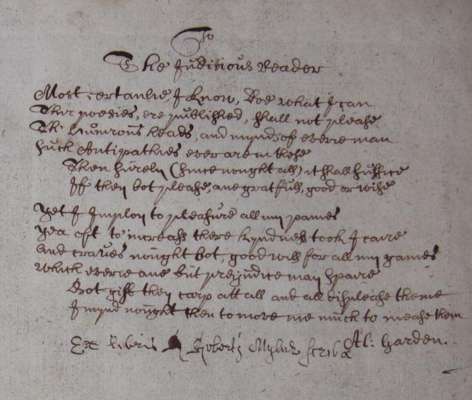 To
The Juditious Reader
Most certanlie I know, Doe what I can
Thir poesies, ere published, shall not please
Th' humrous heads, and mynds of everie man
such Antipathies ever are in these
Then heirein (since nought all) it shall suffice
If then bot please, ane gratfull, good or wise
Yet I imploy to pleasure all my panes
yea oft to increass there kyndness took I caire
and craves nought bot, good will for all my gaines
Which everie ane but prejudice may spaire
Bot gif they carp att all and all displease theme
I mynd nought then to more me much to mease them
Al: Garden.
Ex Libris Roberti Mylne scribæ